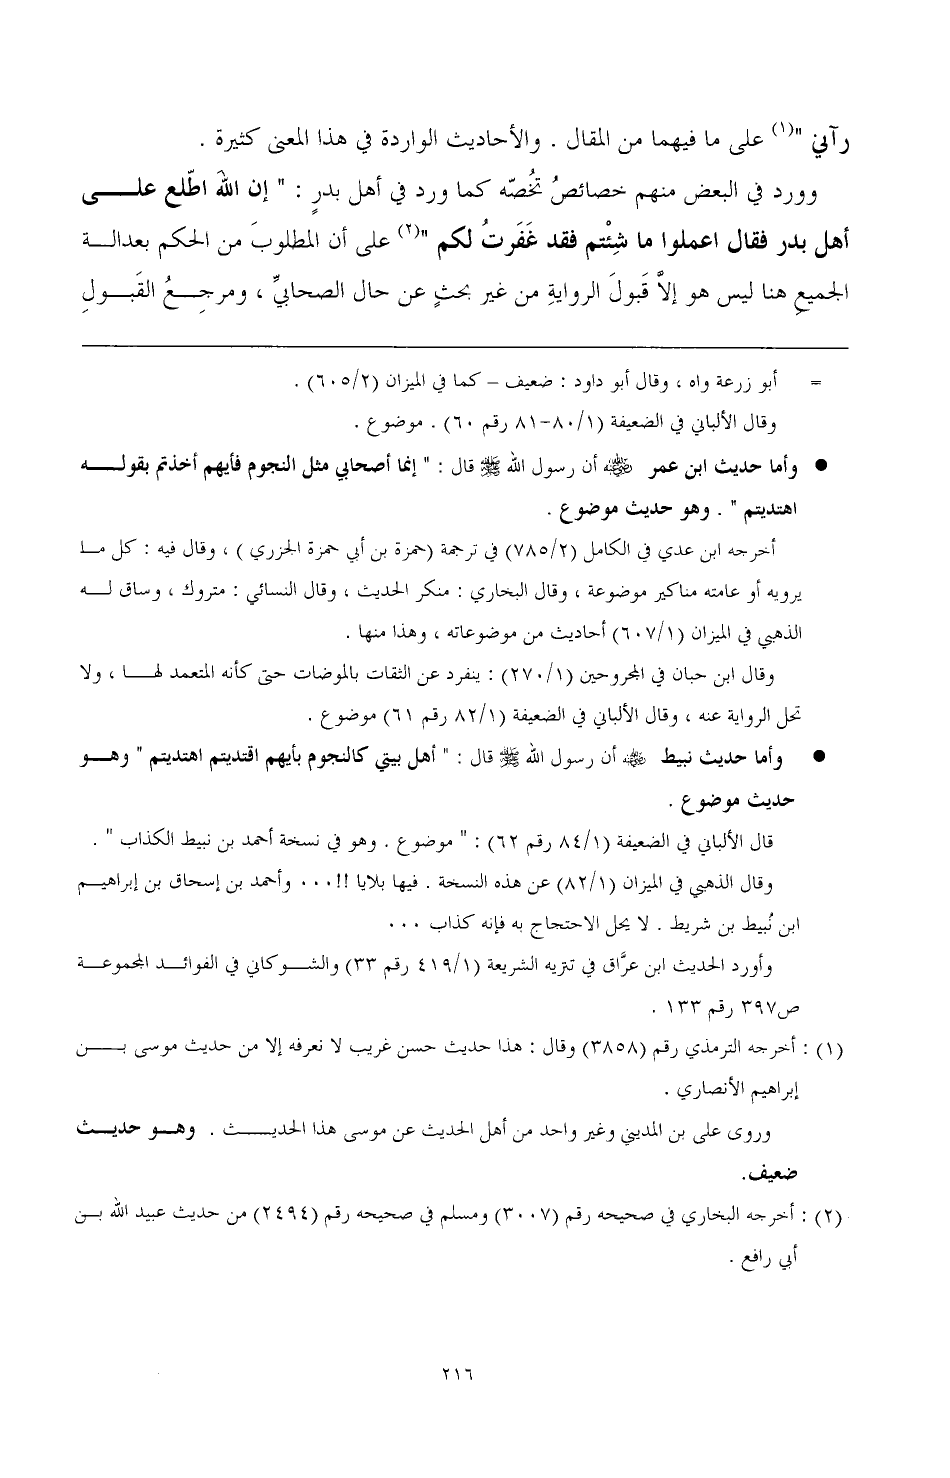 رآني "(١) على ما فيهما من المقال . والأحاديث الواردة في هذا المعنى كثيرة .
وورد في البعض منهم خصائصُ تخُصّه كما ورد في أهل بدرٍ : " إن اللهَ اطّلع علــــى
أهل بدر فقال اعملوا ما شِئْتم فقد غَفَرتُ لكم "(٢) على أن المطلوبَ من الحكم بعدالــة
الجميعِ هنا ليس هو إلاَّ قَبولَ الروايةِ من غير بحثٍ عن حال الصحابيِّ ، ومرجــعُ القَبــولِ
= أبو زرعة واه ، وقال أبو داود : ضعيف – كما في الميزان (٦٠٥/٢) .
وقال الألباني في الضعيفة (٨٠/١–٨١ رقم ٦٠) . موضوع .
● وأما حديث ابن عمر ﵁ أن رسول الله ﷺ قال : " إنما أصحابي مثل النجوم فأيهم أخذتم بقولــــه
اهتديتم " . وهو حديث موضوع .
أخرجه ابن عدي في الكامل (٧٨٥/٢) في ترجمة (حمزة بن أبي حمزة الجزري ) ، وقال فيه : كل مــا
يرويه أو عامته مناكير موضوعة ، وقال البخاري : منكر الحديث ، وقال النسائي : متروك ، وساق لـــه
الذهبي في الميزان (٦٠٧/١) أحاديث من موضوعاته ، وهذا منها .
وقال ابن حبان في المجروحين (٢٧٠/١) : ينفرد عن الثقات بالموضات حتى كأنه المتعمد لهــــا ، ولا
تحل الرواية عنه ، وقال الألباني في الضعيفة (٨٢/١ رقم ٦١) موضوع .
● وأما حديث نبيط ﵁ أن رسول الله ﷺ قال : " أهل بيتي كالنجوم بأيهم اقتديتم اهتديتم " وهـــو
حديث موضوع .
قال الألباني في الضعيفة (٨٤/١ رقم ٦٢) : " موضوع . وهو في نسخة أحمد بن نبيط الكذاب " .
وقال الذهبي في الميزان (٨٢/١) عن هذه النسخة . فيها بلايا !!٠٠٠ وأحمد بن إسحاق بن إبراهيــم
ابن نُبيط بن شريط . لا يحل الاحتجاج به فإنه كذاب ٠٠٠
وأورد الحديث ابن عرَّاق في تنزيه الشريعة (٤١٩/١ رقم ٣٣) والشــوكاني في الفوائــد المجموعــة
ص٣٩٧ رقم ١٣٣ .
(١) : أخرجه الترمذي رقم (٣٨٥٨) وقال : هذا حديث حسن غريب لا نعرفه إلا من حديث موسى بـــــن
إبراهيم الأنصاري .
وروى على بن المديني وغير واحد من أهل الحديث عن موسى هذا الحديــــث . وهــو حديــث
ضعيف.
(٢) : أخرجه البخاري في صحيحه رقم (٣٠٠٧) ومسلم في صحيحه رقم (٢٤٩٤) من حديث عبيد الله بــن
أبي رافع .
٢١٦